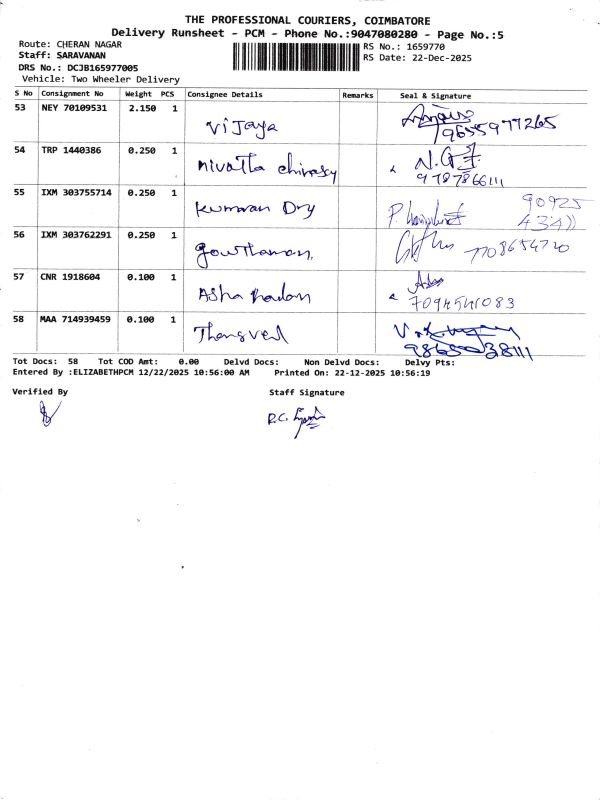 THE PROFESSIONAL COURIERS, COIMBATORE
Delivery Runsheet - PCM - Phone No.:9047080280 - Page No.:5
Route: CHERAN NAGAR
RS No.: 1659770
Staff: SARAVANAN
RS Date: 22-Dec-2025
DRS No.: DCJB165977005
Vehicle: Two Wheeler Delivery
S No Consignment No Weight PCS Consignee Details Remarks Seal & Signature
53 NEY 70109531 2.150 1
Vijaya
9655977265
54 TRP 1440386 0.250 1
9787866111
55 IXM 303755714 0.250 1
Kumaran Dry
90925
56 IXM 303762291 0.250 1
Gowthaman.
7708654720
57 CNR 1918604 0.100 1
Asha
7094541083
58 MAA 714939459 0.100 1
Thangvel
Tot Docs: 58 Tot COD Amt: 0.00 Delvd Docs: Non Delvd Docs: Delvy Pts:
Entered By :ELIZABETHPCM 12/22/2025 10:56:00 AM Printed On: 22-12-2025 10:56:19
Verified By Staff Signature